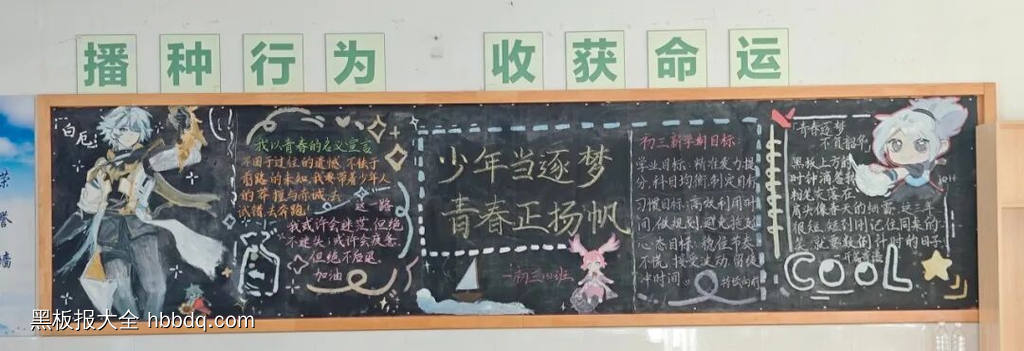 播种行为 收获命运
荣
誉
墙
白厄
我以青春的名义宣言
不困于过往的遗憾,不怯于
前路的未知,我要带着少年人
的莽撞与赤诚,去
试错去奔跑!
这一路
我或许会迷茫,但绝
不迷失;或许会疲惫
但绝不后退
加油
少年当逐梦
青春正扬帆
初三 班
初三新学期目标
学业目标:精准发力提
分,科目均衡,制定目标
习惯目标:高效利用时
间,做规划,避免拖延
心态目标:稳住节奏
不慌,接受波动,留缓
冲时间。
青春逐梦
不负韶华
黑板上方
时钟滴答
粉笔灰落在
肩头像春天的细雪,这三年
很短,短到刚记住同桌的
笑,就要数倒计时的日子
COOL
黑板报大全 hbbdq.com